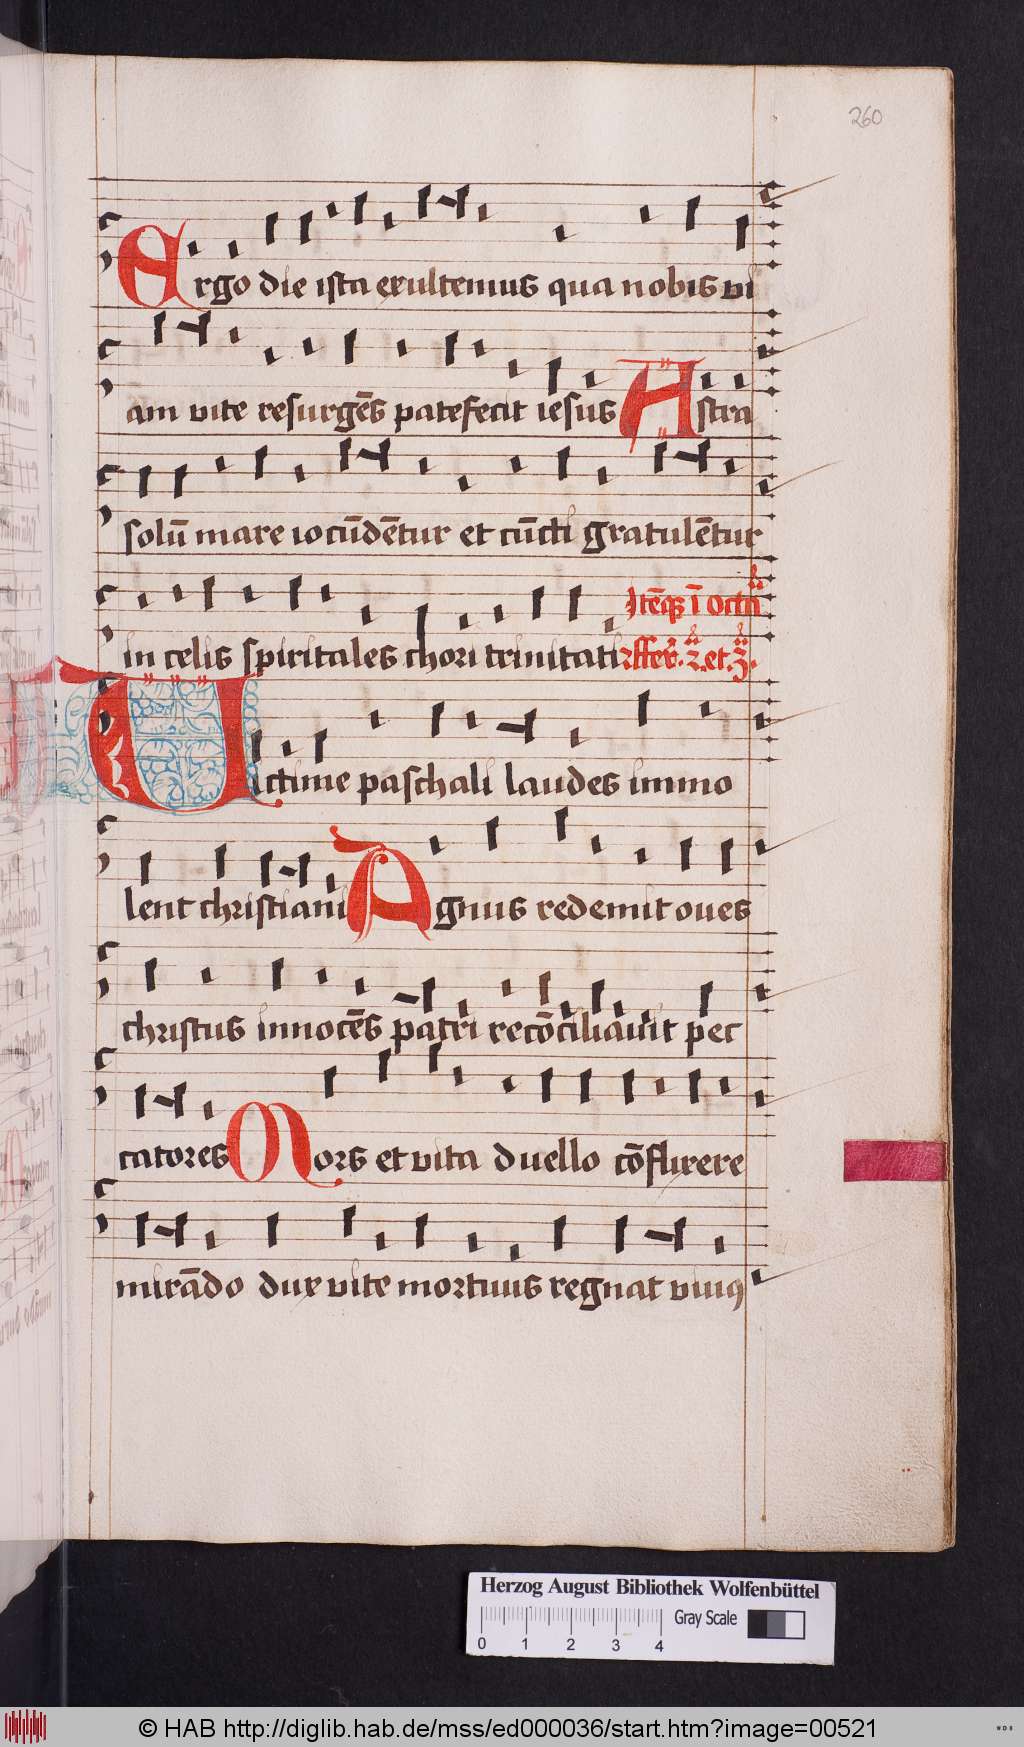 260
Ergo die ista exultemus qua nobis vi
am vite resurgēs patefecit iesus Astra
solū mare iocūdētur et cūcti gratulētur
in celis spiritales chori trinitati
Victime paschali laudes immo
lent christiani Agnus redemit oues
christus innocēs patri recōciliauit pec
catores Mors et vita duello cōflixere
mirādo dux vite mortuus regnat viuꝰ
Herzog August Bibliothek Wolfenbüttel
0 1 2 3 4
Gray Scale
© HAB http://diglib.hab.de/mss/ed000036/start.htm?image=00521